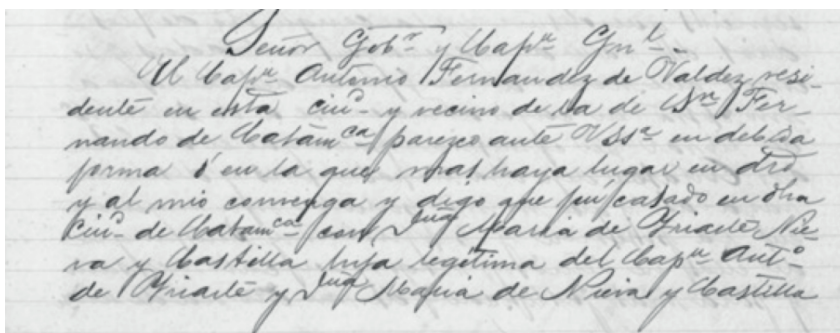 Señor Gobr y Capn Gnl.
El Capn Antonio Fernandez de Valdez resi-
dente en esta ciud y vecino de la de Sn Fer-
nando de Catamca parezco ante VSSa en debida
forma é en la que mas haya lugar en dro
y al mio convenga y digo que fui casado en dha
Ciud de Catamca con Maria de Yriarte Nie-
va y Castilla hija legitima del Capn Anto
de Yriarte y Maria de Nieva y Castilla